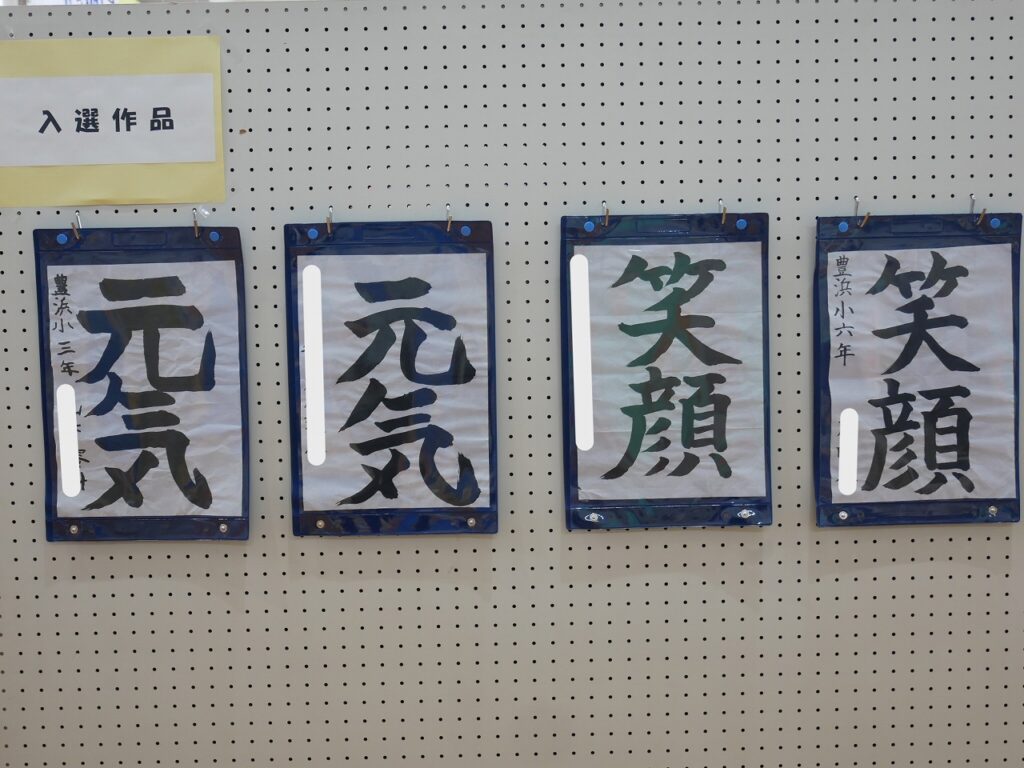 入選作品
元気
豊浜小 三年
元気
笑顔
笑顔
豊浜小六年